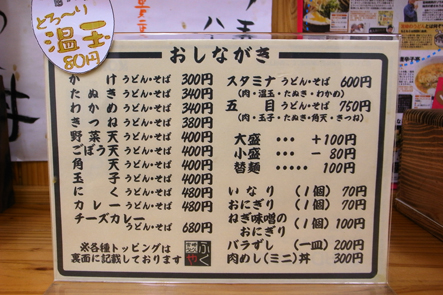 とろ〜り
温玉
80円
おしながき
かけ うどん・そば 300円
たぬき うどん・そば 340円
わかめ うどん・そば 340円
きつね うどん・そば 380円
野菜天 うどん・そば 400円
ごぼう天 うどん・そば 400円
角天 うどん・そば 400円
玉子 うどん・そば 400円
にく うどん・そば 480円
カレー うどん・そば 480円
チーズカレー
うどん・そば 680円
※各種トッピングは
裏面に記載しております
ふくや
スタミナ うどん・そば 600円
(肉・温玉・たぬき・わかめ)
五目 うどん・そば 750円
(肉・玉子・たぬき・角天・きつね)
大盛 ・・・・ +100円
小盛 ・・・ − 80円
替麺 ・・・・・ 100円
いなり (1個) 70円
おにぎり (1個) 70円
ねぎ味噌の
おにぎり (1個) 100円
バラずし (一皿) 200円
肉めし(ミニ)丼 300円